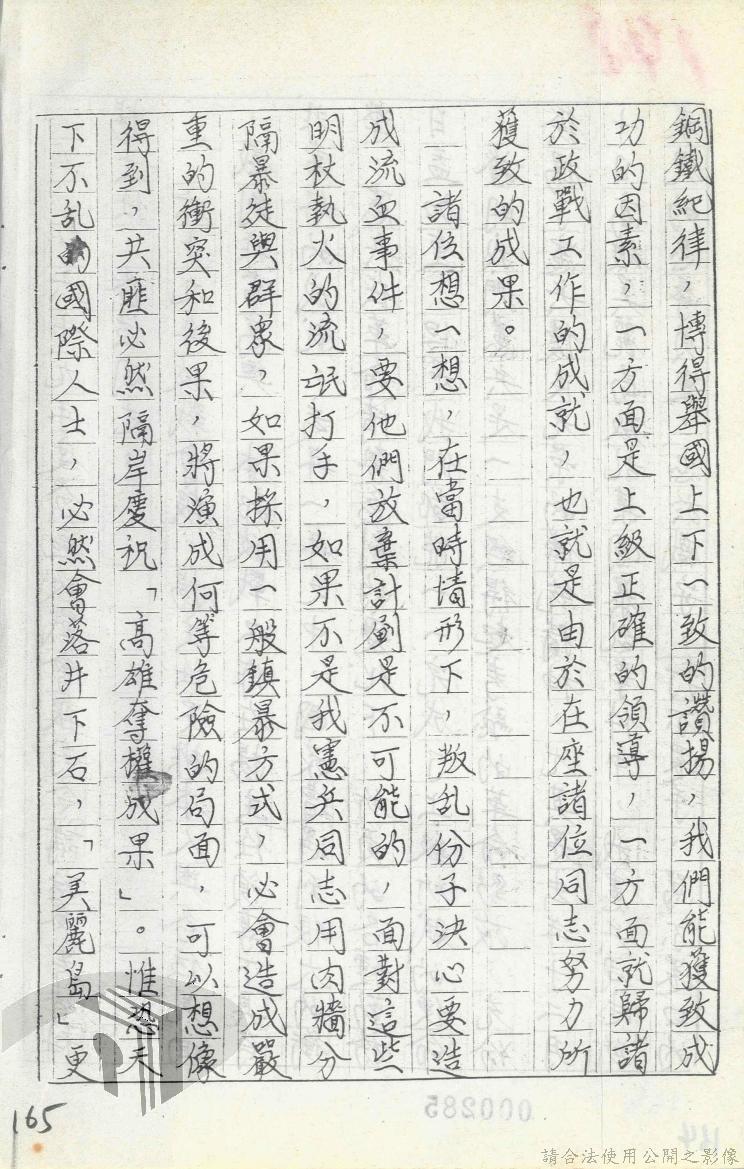 鋼鐵紀律，博得舉國上下一致的讚揚，我們能獲致成
功的因素，一方面是上級正確的領導，一方面就歸諸
於政戰工作的成就，也就是由於在座諸位同志努力所
獲致的成果。
諸位想一想，在當時情形下，叛乱份子決心要造
成流血事件，要他們放棄計劃是不可能的，面對這些
明杖執火的流氓打手，如果不是我憲兵同志用肉牆分
隔暴徒與群眾，如果採用一般鎮暴方式，必會造成嚴
重的衝突和後果，將演成何等危險的局面，可以想像
得到，共匪必然隔岸慶祝「高雄奪權成果」。惟恐天
下不乱的國際人士，必然會落井下石，「美麗島」更
165
000285
請合法使用公開之影像